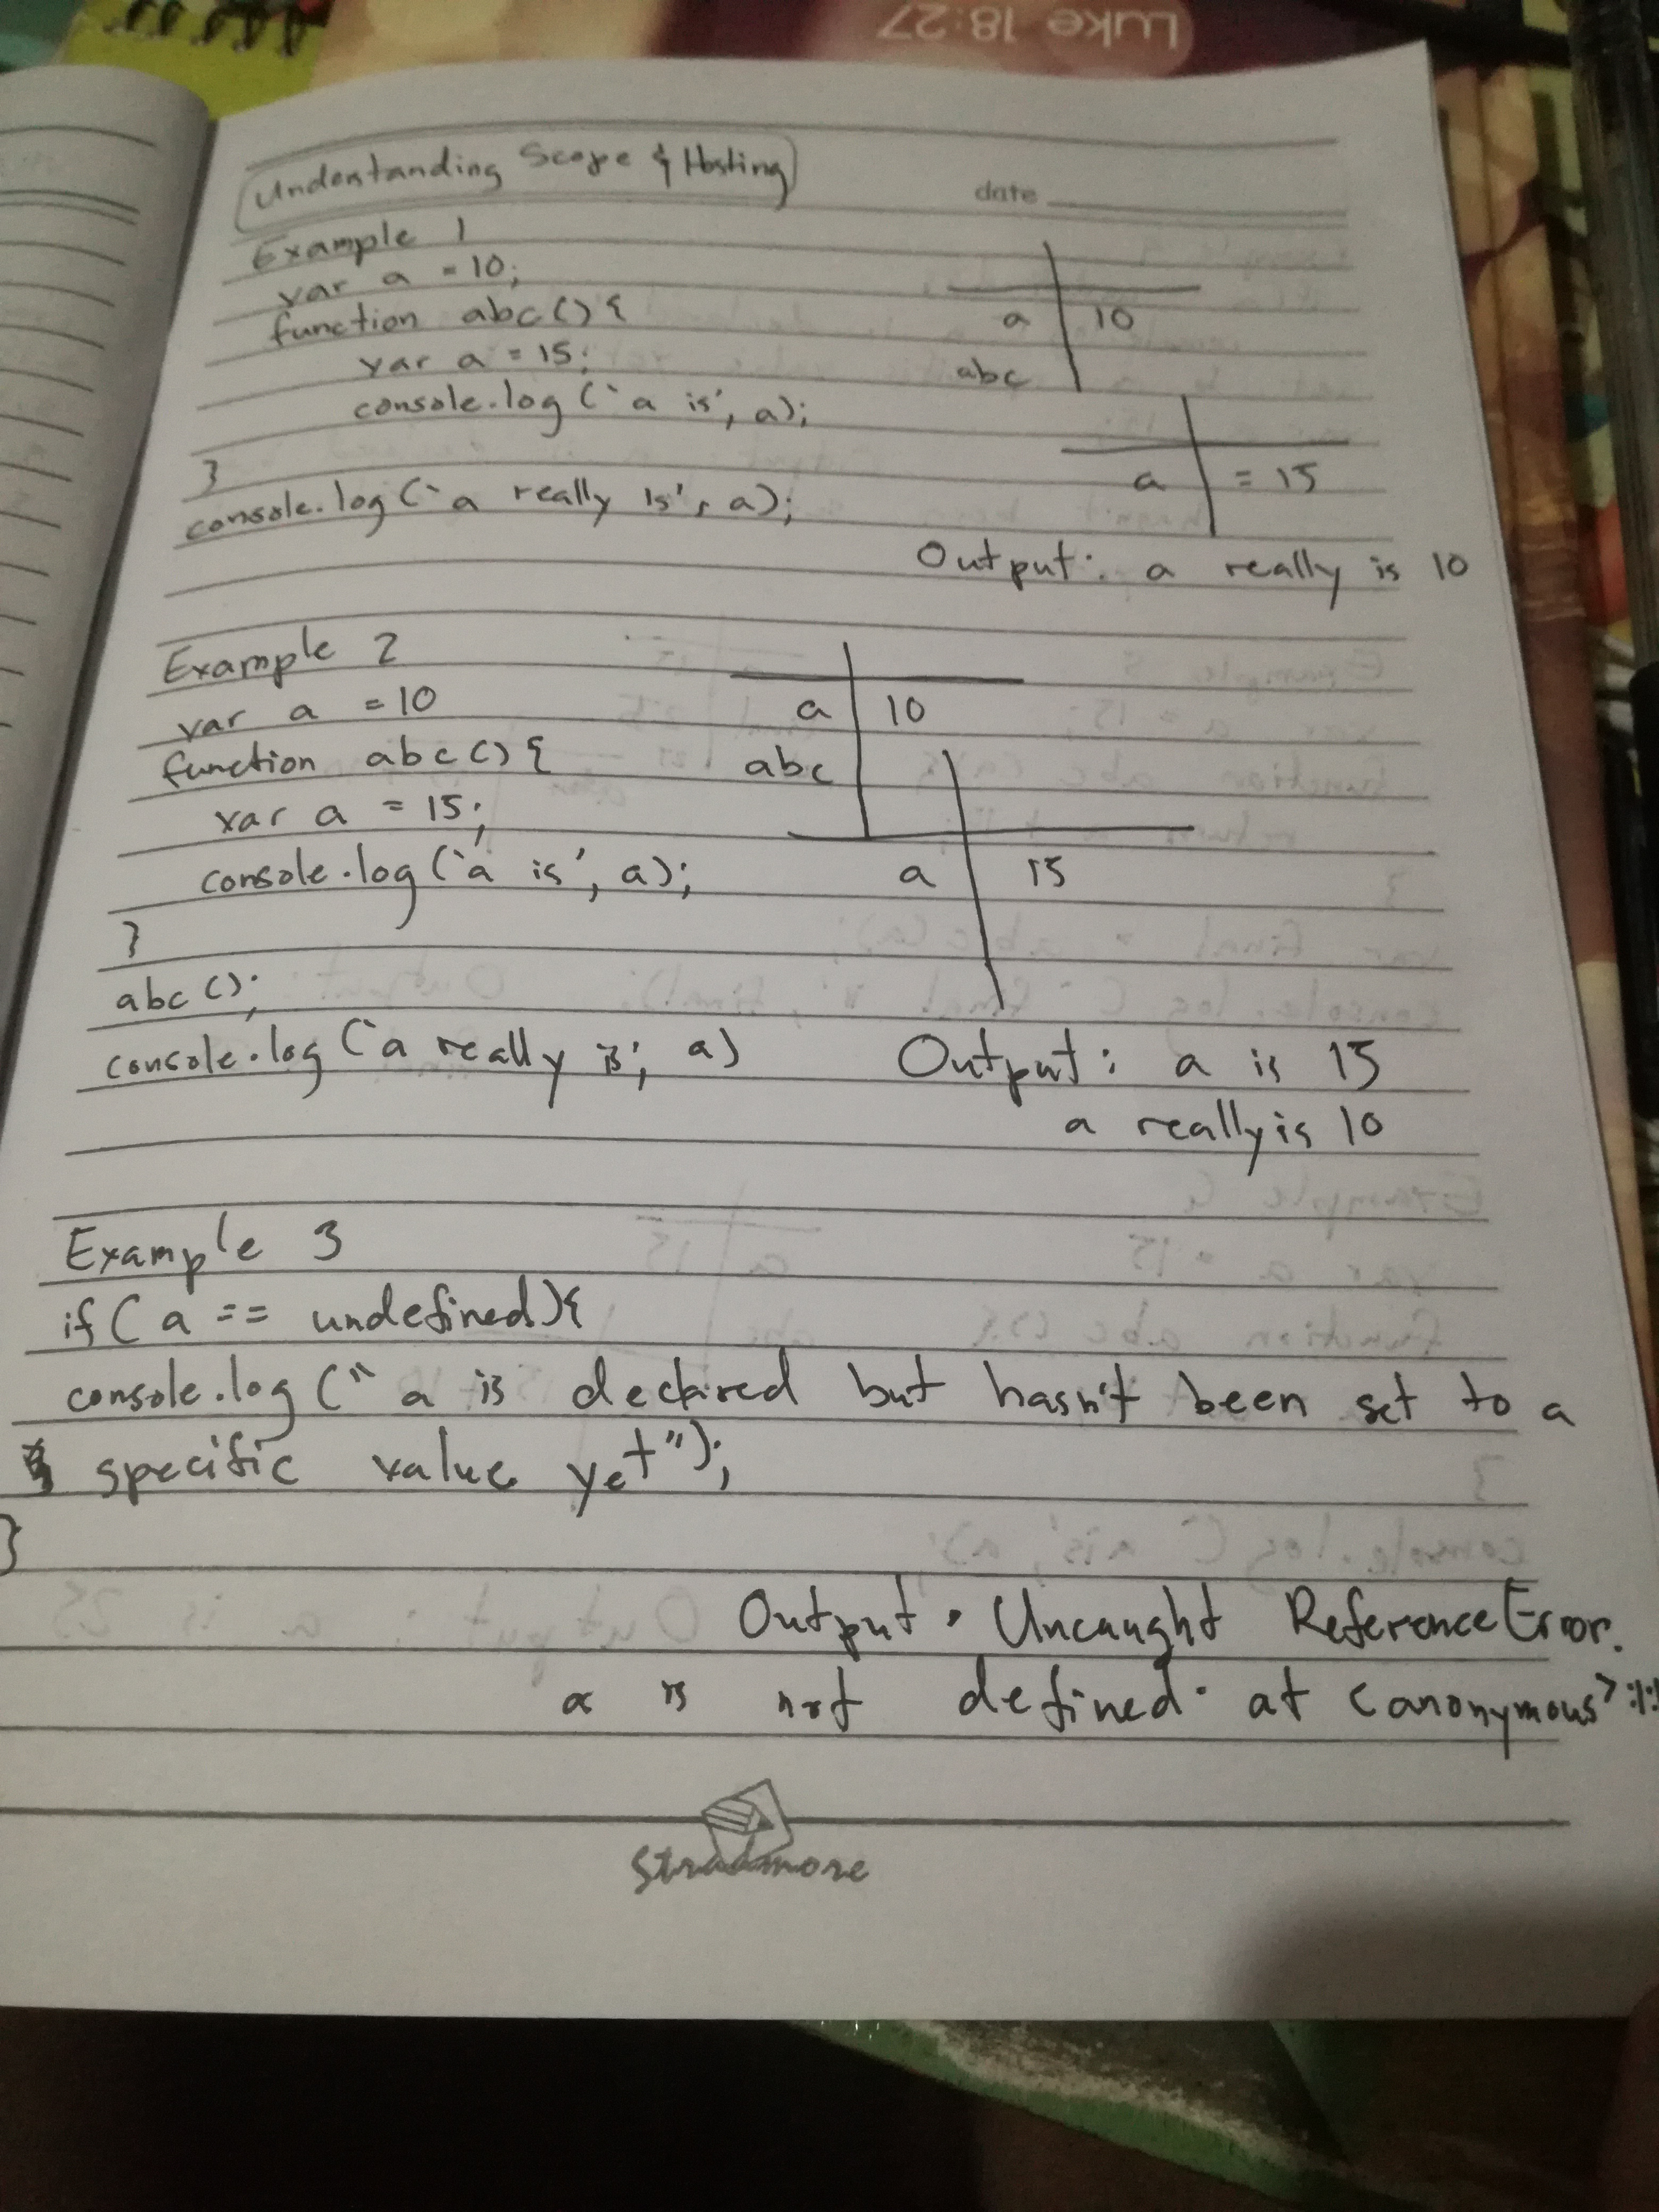 Luke 18:27
Understanding Scope & Hosting
date
Example 1
var a = 10;
function abc () {
var a = 15;
console.log (`a is', a);
}
console.log (`a really is', a);
a 10
abc
a = 15
Output: a really is 10
Example 2
var a = 10
function abc () {
var a = 15;
console.log (`a is', a);
}
abc ();
console.log (`a really is', a)
a 10
abc
a 15
Output: a is 15
a really is 10
Example 3
if ( a == undefined){
console.log (" a is declared but hasn't been set to a
specific value yet");
}
Output: Uncaught ReferenceError.
a is not defined. at <anonymous>:1:1
Stradmore